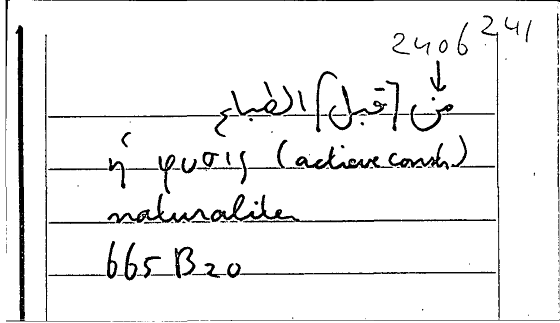 2406 241
↓
من [قبل] الطباع
ἡ φυσις (active constr.)
naturaliter
665 B 20